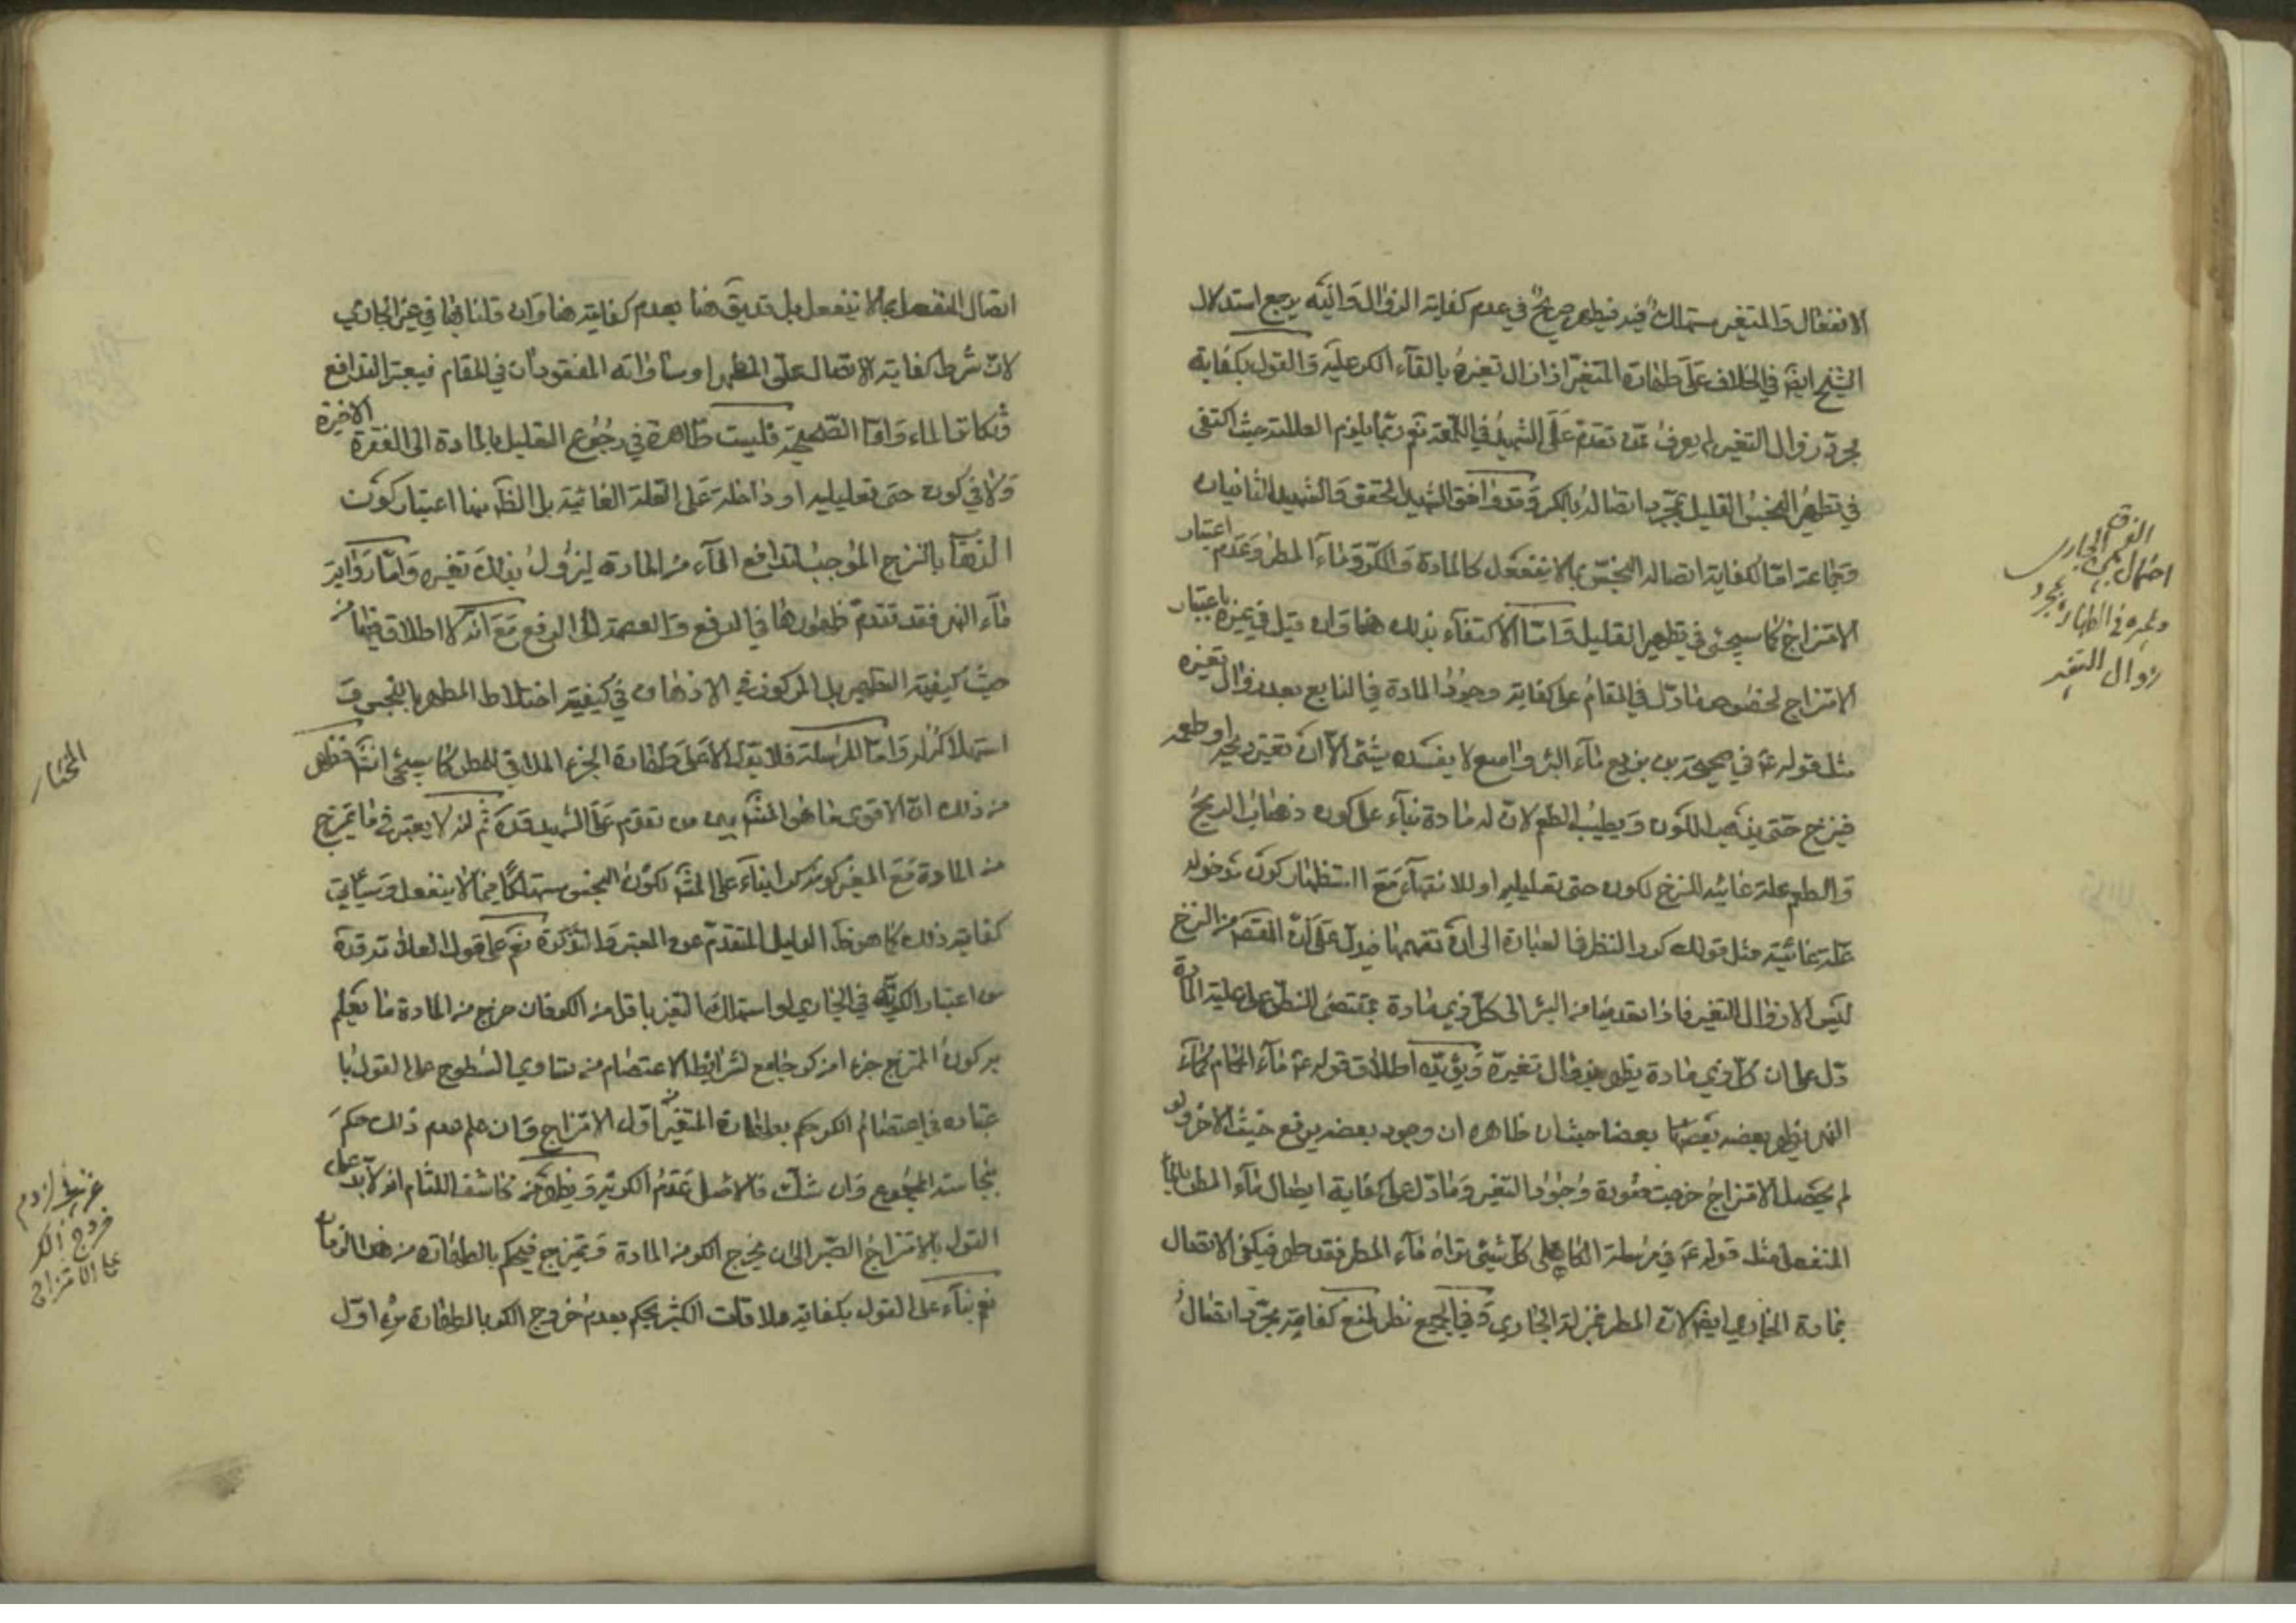 الانفعال والمتغير مستهلك فيه فيطهر صريح في عدم كفاية الزوال واليه يرجع استدلال
الشيخ ايضا في الخلاف على طهارة المتغير اذا زال تغيره بالقآء الكر عليه والقول بكفاية
مجرد زوال التغير لم يعرف عمن تقدم على الشهيد في اللمعة نعم ربما يلزم العلامة حيث اكتفى
في تطهير النجس القليل بمجرد اتصاله بالكر وقد وافقه الشهيد المحقق والشهيد الثانيان
وجماعة اما لكفاية اتصال النجس بما لا ينفعل كالمادة والكر وماء المطر وعدم اعتبار
الامتزاج كما سيجئ في تطهير القليل واما الاكتفآء بذلك هنا وان قيل في غيره باعتبار
الامتزاج لخصوص ما دل في المقام على كفاية وجود المادة في النابع بعد زوال تغيره
مثل قوله ع في صحيحة بن بزيع مآء البئر واسع لا يفسده شئ الا ان تغير ريحه او طعمه
فينزح حتى يذهب اللون ويطيب الطعم لان له مادة بنآء على كون ذهاب الريح
والطعم علة غائية للنزح لكون حتى تعليلية او للانتهآء مع استظهار كون مدخوله
علة غائية مثل قولك كرر النظر في العبارة الى ان تفهمها فيدل على ان المقصود من النزح
ليس الا زوال التغير فاذا تعدينا من البئر الى كل ذي مادة بمقتضى النص على علية المادة
دل على ان كل ذي مادة يطهر بزوال تغيره ويؤيده اطلاق قوله ع ماء الحمام كمآء
النهر يطهر بعضه بعضا حيث ان ظاهره ان وجود بعضه يرفع خبث الاخر ولو
لم يحصل الامتزاج خرجت صورة وجود التغير وما دل على كفاية ايصال مآء المطر بالمآء
المنفعل مثل قوله ع في مرسلة الكاهلى كل شيئ يراه مآء المطر فقد طهر فيكفى الاتصال
بمادة الجاري ايضا لان المطر بمنزلة الجاري وفي الجميع نظر لمنع كفاية مجرد اتصال
الفرق بين الجارى
احتمال
وغيره فى الطهارة بمجرد
زوال التغير
اتصال المنفعل بما لا ينفعل بل قد يق هنا بعدم كفايته هنا وان قلنا بها في غير الجاري
لان شرط كفاية الاتصال على المطهر او مساواته المفقودان في المقام فيعتبر التدافع
وتكاثر الماء واما الصحيحة فليست ظاهرة في رجوع التعليل بالمادة الى الفقرة الاخيرة
ولا في كون حتى تعليلية او داخلة على العلة الغائية بل الظاهر منها اعتبار كون
الذهاب بالنزح الموجب لتدافع المآء من المادة ليزول بذلك تغيره واما رواية
مآء النهر فقد تقدم ظهورها في الدفع والعصمة لا في الرفع مع انه لا اطلاق فيها من
حيث كيفية التطهير بل المركوز في الاذهان في كيفية اختلاط المطهر بالنجس و
استهلاكه له واما المرسلة فلا يدل الا على طهارة الجزء الملاقي للمطر كما سيجئ انشآ فظهر
من ذلك ان الاقوى ما هو المشهور بين من تقدم على الشهيد قده ثم انه لا يعتبر فى ما يمتزج
من المادة مع المتغير كونه كرا بنآء على المشهور لكون النجس مستهلكا فيما لا ينفعل وسيأتي
كفاية ذلك كما هو ظاهر الدليل المتقدم عن المعتبر والتذكرة نعم على قول العلامة قده
من اعتبار الكرية في الجاري لو استهلك المتغير باقل من الكر فان خرج من المادة ما يعلم
بر كون الممتزج جزء من كر جامع لشرائط الاعتصام من تساوي السطوح على القول با
عتباره في اعتصام الكر حكم بطهارة المتغير من اول الامتزاج وان علم عدم ذلك حكم
بنجاسة المجموع وان شك فالاصل عدم الكرية ويظهر من كاشف اللثام انه لا بد على
القول بالامتزاج الصبر الى ان يخرج الكر من المادة ويمتزج فيحكم بالطهارة من هذا الزمان
نعم بنآء على القول بكفاية ملاقات الكثير يحكم بعدم خروج الكر بالطهارة من اول
المختار
لزوم
خروج الكر
على الامتزاج